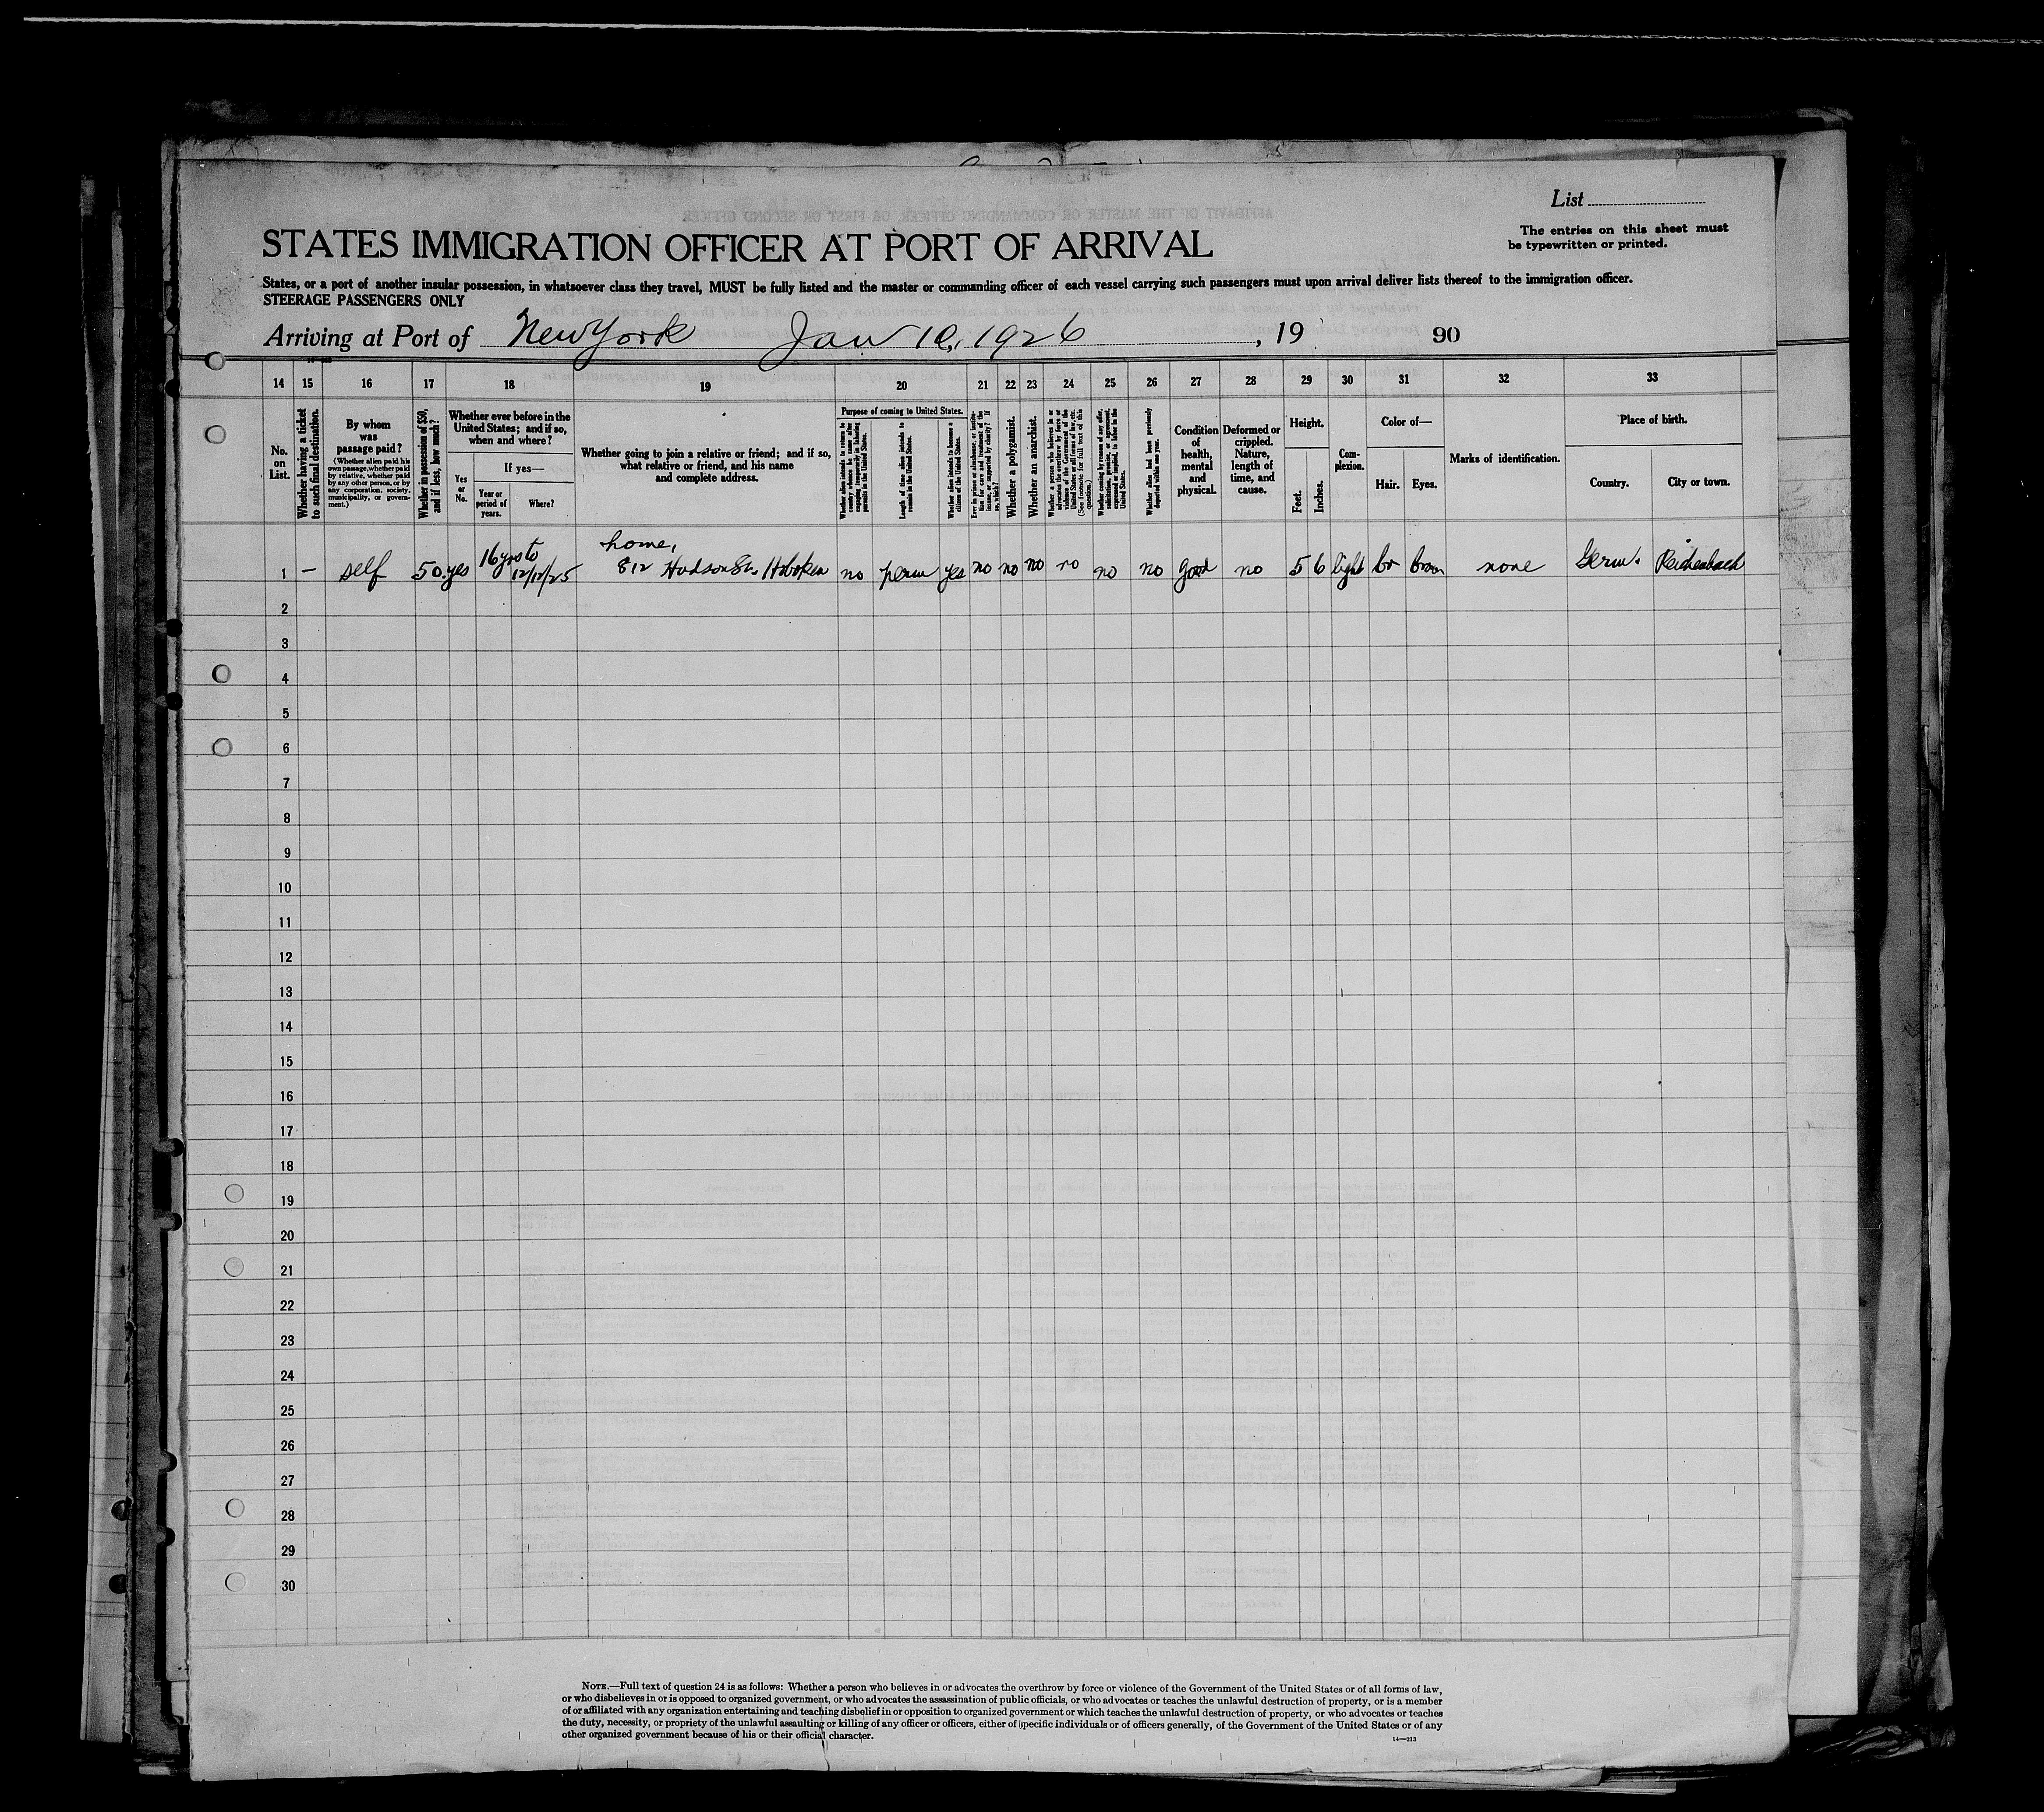 List
The entries on this sheet must
be typewritten or printed.
STATES IMMIGRATION OFFICER AT PORT OF ARRIVAL
States, or a port of another insular possession, in whatsoever class they travel, MUST be fully listed and the master or commanding officer of each vessel carrying such passengers must upon arrival deliver lists thereof to the immigration officer.
STEERAGE PASSENGERS ONLY
Arriving at Port of New York Jan 10, 1926, 19 90
14 15 16 17 18 19 20 21 22 23 24 25 26 27 28 29 30 31 32 33
No.
on
List.
Whether having a ticket
to such final destination.
By whom
was
passage paid?
(Whether alien paid his
own passage, whether paid
by relative, whether paid
by any other person, or by
any corporation, society,
municipality, or govern-
ment.)
Whether in possession of $50,
and if less, how much?
Whether ever before in the
United States; and if so,
when and where?
Yes
or
No.
If yes—
Year or
period of
years.
Where?
Whether going to join a relative or friend; and if so,
what relative or friend, and his name
and complete address.
Purpose of coming to United States.
Whether alien intends to return to
country whence he came after
engaging temporarily in laboring
pursuits in the United States.
Length of time alien intends to
remain in the United States.
Whether alien intends to become a
citizen of the United States.
Ever in prison or almshouse, or institu-
tion for care and treatment of the
insane, or supported by charity? If
so, which?
Whether a polygamist.
Whether an anarchist.
Whether a person who believes in or
advocates the overthrow by force or
violence of the Government of the
United States or all forms of law, etc.
(See footnote for full text of this
question.)
Whether coming by reason of any offer,
solicitation, promise, or agreement,
expressed or implied, to labor in the
United States.
Whether alien had been previously
deported within one year.
Condition
of
health,
mental
and
physical.
Deformed or
crippled.
Nature,
length of
time, and
cause.
Height.
Feet.
Inches.
Com-
plexion.
Color of—
Hair.
Eyes.
Marks of identification.
Place of birth.
Country.
City or town.
16 yrs to home,
1 – self 50. yes 12/12/25 812 Hudson St. Hoboken no perm yes no no no no no no good no 5 6 light br brown none Germ. Reichenbach
2
3
4
5
6
7
8
9
10
11
12
13
14
15
16
17
18
19
20
21
22
23
24
25
26
27
28
29
30
NOTE.—Full text of question 24 is as follows: Whether a person who believes in or advocates the overthrow by force or violence of the Government of the United States or of all forms of law,
or who disbelieves in or is opposed to organized government, or who advocates the assassination of public officials, or who advocates or teaches the unlawful destruction of property, or is a member
of or affiliated with any organization entertaining and teaching disbelief in or opposition to organized government or which teaches the unlawful destruction of property, or who advocates or teaches
the duty, necessity, or propriety of the unlawful assaulting or killing of any officer or officers, either of specific individuals or of officers generally, of the Government of the United States or of any
other organized government because of his or their official character.
14—213